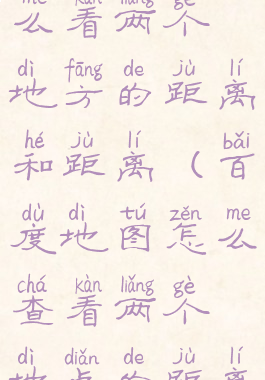 me kàn liǎng gè
么看两个
dì fāng de jù lí
地方的距离
hé jù lí bǎi
和距离（百
dù dì tú zěn me
度地图怎么
chá kàn liǎng gè
查看两个
dì diǎn de jù lí
地点的距离